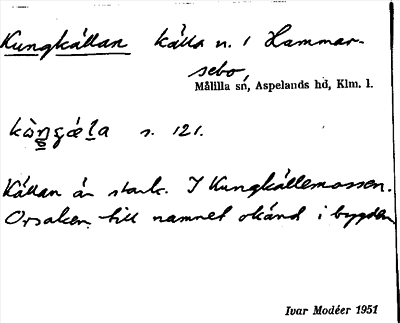 Kungkällan källa n. i Hammar-
sebo,
Målilla sn, Aspelands hd, Klm. l.
s. 121.
Källan är stark. I Kungkällemossen.
Orsaken till namnet okänd i bygden
Ivar Modéer 1951